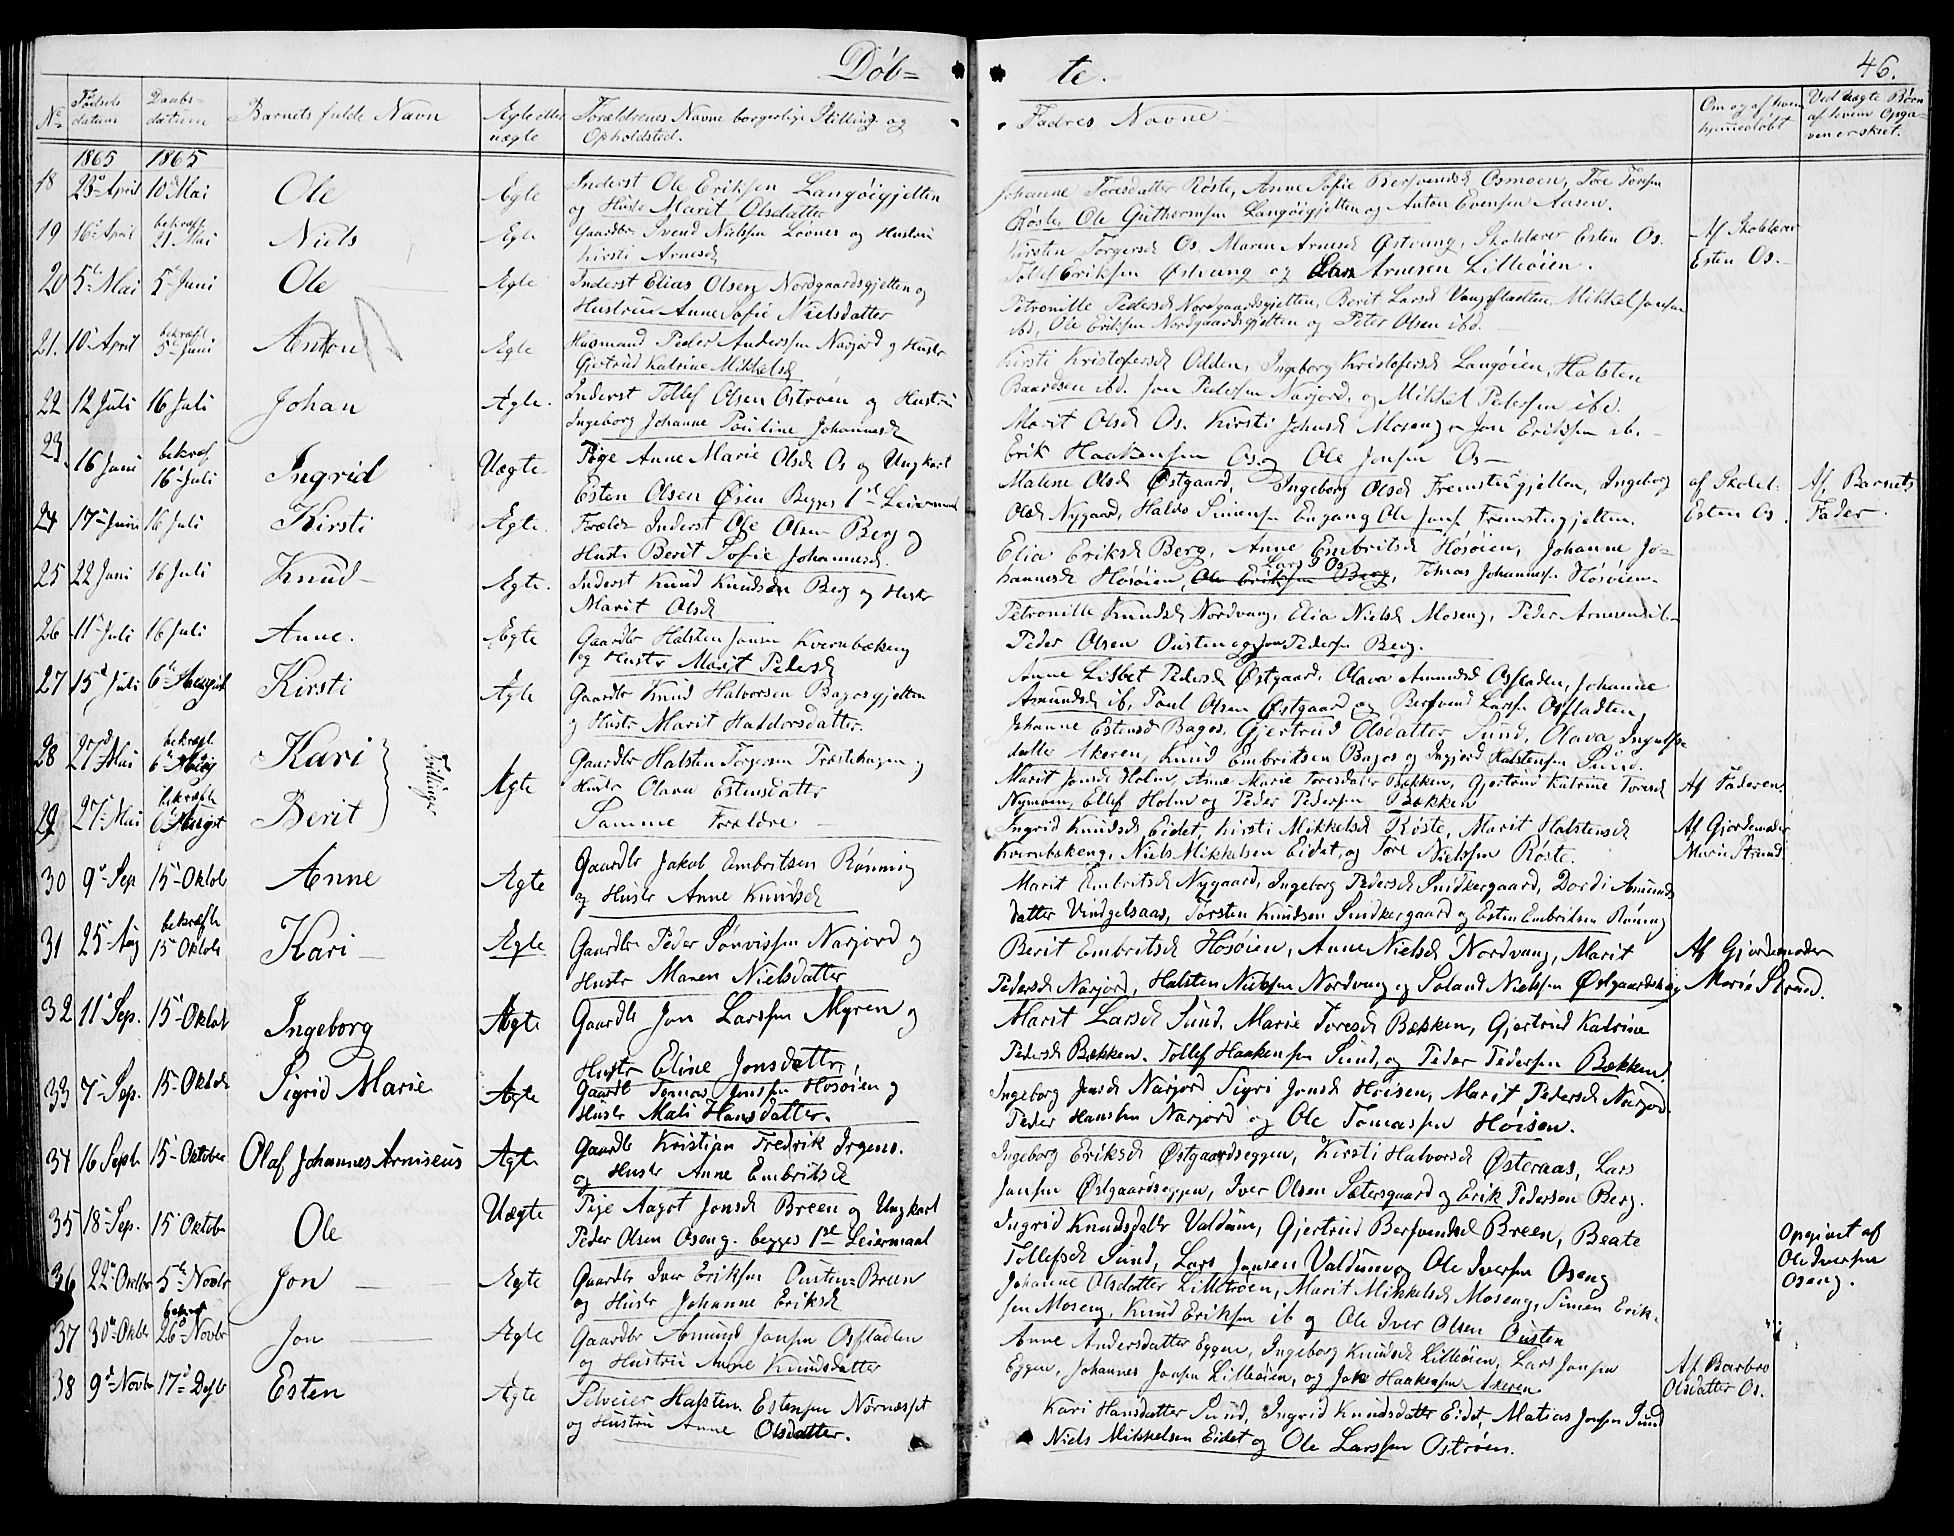 Døb=
te.
46.
No
Fødsels datum
Daabs= datum
Barnets fulde Navn
Ægte eller uægte
Forældrenes Navne borgerlige Stilling og Opholdsted.
Fadres Navne
Om og af hvem hjemmedøbt
Ved uægte Børn af hvem Opgaven er skeet.
1865 1865
18 23 April 10 Mai Ole Ægte Inderst Ole Eriksen Langøigjelten
og Hustr Marit Olsdatter
Johanne Toresdatter Røste, Anne Sofie Bersvendsd Osmoen, Tore Torsen
Røste, Ole Guthormsen Langøigjelten og Anton Evensen Aasen.
19 16 April bekræft 21 Mai Niels Ægte Gaardbr Svend Nielssen Lovnes og Hustrū
Kirsti Arnesd
Kirsten Torgersd Os. Maren Arnesd Østvang, Skolelærer Esten Os.
Tollef Eriksen Østvang og Lars Arnesen Lilleøien.
Af Skolelærer
Esten Os.
20 5te Mai 5te Juni Ole Ægte Inderst Elias Olsen Nordgaardsgjelten og
Hustrue Anne Sofie Nielsdatter
Petronille Pedersd Nordgaardsgjelten, Berit Larsd Vangsfladten, Mikkel Jonsen
ibd, Ole Eriksen Nordgaardsgjelten og Peter Olsen ibd.
21. 10 April bekræft 5te Juni Anton Ægte Husmand Peder Anderssen Narjord og Hustr
Gjertrud Katrine Mikkelsd
Kirsti Kristofersd Odden, Ingeborg Kristofersd Langøien, Halsten
Baardsen ibd. Jon Pedersen Narjord, og Mikkel Pedersen ibd.
22 12 Juli 16 Juli Johan Ægte. Inderst Tollef Olsen Østrøen og Hustrū
Ingeborg Johanne Pauline Johannesd
Marit Olsd Os. Kirsti Johnsd Moseng, Jon Erikssen ib.
Erik Haakensen Os og Ole Jonsen Os
23. 16 Juni bekræf 16 Juli Ingrid Uægte Pige Anne Marie Olsd Os og Ungkarl
Esten Olsen Øien Begges 1ste Leiermaal
Malene Olsd Østgaard, Ingeborg Olsd Fremstugjelten, Ingeborg
Olsd Nygaard, Haldo Simensen Engang Ole Jonsen Fremstugjelten.
af Skolel.
Esten Os.
Af Barnets
Fader.
24 17 Juni 16 Juli Kirsti Ægte Foræld. Inderst Ole Olsen Berg og
Hustr Berit Sofie Johannesd.
Elia Eriksd Berg, Anne Embritsd Høsøien, Johanne Jo=
hannesd Høsøien, Ole Eriksen Berg, Lars Os Tomas Johannesen Høsøien.
25 22 Juni 16 Juli Knud Ægte. Inderst Knud Knudsen Berg og Hustr
Marit Olsd
Petronille Knudsd Nordvang, Elia Nielsd Moseng, Peder Arnesen
Peder Olsen Ousten og Jon Pedersen Berg.
26 11 Juli 16 Juli Anne. Ægte Gaardbr Halsten Jonsen Kvernbækeng
og Hustr Marit Pedersd
Anne Lisbet Pedersd Østgaard. Olava Amundsd Osfladen, Johanne
Amundsd ib, Poul Olsen Østgaard og Bersvend Larsen Osfladten
27 15 Juli 6te August Kirsti Ægte Gaardbr Knud Halvorsen Bagosgjelten
og Hustr Marit Haldorsdatter.
Johanne Estensd Bagos. Gjertrud Olsdatter Sund, Olava Ingulfs
datter Akeren, Knud Embritsen Bagos og Ingjord Halstensen Sund.
28 27 Mai bekræft 6 Aug Kari Tvillinger Ægte Gaardbr Halsten Torgersen Træstehagen og
Hustr Olava Estensdatter
Marit Jonsd Holm, Anne Marie Toresdatter Bækken, Gjertrud Katrine Toresd
Nymoen, Ellef Holm og Peder Pedersen Bækken
Af Faderen.
29 27 Mai bekræft 6te August Berit Samme Forældre
Ingrid Knudsd Eidet, Kirsti Mikkelsd Røste, Marit Halstensd
Kvernbækeng, Niels Mikkelsen Eidet, og Tore Nielssen Røste.
Af Gjordemoder
Marie Strand.
30 9 Sep 15 Oktob Anne Ægte Gaardbr Jakob Embritsen Rønning
og Hustr Anne Knudsd
Marit Embritsd Nygaard, Ingeborg Pedersd Snidkergaard, Dordi Amunds
datter Vindgelsaas, Torsten Knudsen Snidkergaard og Esten Embritsen Rønning
31 25 Aug bekræft 15 Oktob Kari Ægte Gaardbr Peder Sønvissen Narjord og
Hustr Maren Nielsdatter
Berit Embritsd Høsøien, Anne Nielsd Nordvang, Marit
Pedersd Narjord, Halsten Nielsen Nordvang og Soland Nielssen Østgaardshøg
Af Gjordemoder
Marie Strand.
32 11 Sep. 15 Oktob Ingeborg Ægte Gaardbr Jon Larssen Myren og
Hustr Eline Jonsdattr,
Marit Larsd Sund, Marie Toresd Bækken, Gjertrud Katrine
Pedersd Bækken. Tollef Haakensen Sund, og Peder Pedersen Bækken.
33 7 Sep. 15 Oktob Sigrid Marie Ægte Gaardb Tomas Jonssen Høsøien og
Hustr Mali Hansdatter.
Ingeborg Jonsd Narjord Sigri Jonsd Hoisen, Marit Pedersd Narjord
Peder Hanssen Narjord og Ole Tomassen Høisen.
34 16 Septb 15 Oktober Olaf Johannes Arniseus Ægte Gaardb Kristian Fredrik Irgens.
og Hustr Anne Embritsd
Ingeborg Eriksd Østgaardseggen, Kirsti Halvorsd Østeraas, Lars
Jonsen Østgaardseggen, Iver Olsen Sætersgaard og Erik Pedersen Berg.
35 18 Sep. 15 Oktobr Ole Uægte Pige Aagot Jonsd Breen og Ungkarl
Peder Olsen Oseng. begges 1ste Leiermaal
Ingrid Knudsdatter Valdum, Gjertrud Bersvendsd Breen, Beate
Tollefsd Sund, Lars Jonsen Valdum og Ole Iversen Oseng
Opgivet af
Ole Iversen
Oseng.
36 22 Octbr 5te Novbr Jon Ægte Gaardbr Iver Eriksen Ousten=Breen
og Hustr Johanne Eriksd
Johanne Olsdatter Lilletrøen, Marit Mikkelsd Moseng, Simen Erik=
sen Moseng, Knud Eriksen ib og Ole Iver Olsen Ousten
37 30 Oktbr 26 Novbr Jon Ægte Gaardbr Amund Jonsen Osfladen
og Hustrū Anne Knudsdatter
Anne Andersdatter Eggen, Ingeborg Knudsd Lilleøien, Lars Jonsen
Eggen, Johannes Jonsen Lilleøien, og Jon Haakensen Akeren
Af Barbro
Olsdatter Os.
38 9 Novbr 17 Desbr Esten Ægte Selveier Halsten Estensen Nørnæsset
og Hustrū Anne Olsdatter.
Kari Hansdatter Sund, Ingrid Knudsdatter Eidet, Matias Jonsen Sund
Niels Mikkelsen Eidet og Ole Larssen Ostrøen.